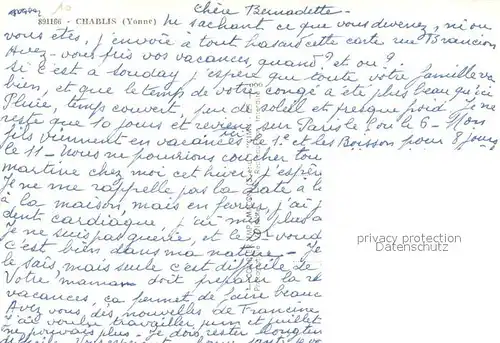 Chère Bernadette
891166 - CHABLIS (Yonne) Ne sachant ce que vous devenez, ni ou
vous êtes, j'envoie à tout hasard cette carte rue Brancion
Avez-vous pris vos vacances, quand? et ou?
Si c'est à Souday j'espère que toute votre famille va
bien, et que le temps de votre congé a été plus beau qu'ici
Pluie, temps couvert, peu de soleil et presque froid. Je ne
reste que 10 jours et reviens sur Paris le 6 - Mon
fils viennent en vacances le 1° et les Boisson pour 8 jours
le 11 - Nous ne pourrions coucher tou
martine chez moi cet hiver, j'espère
Je ne me rappelle pas la date à la
à la maison, mais en février, j'ai
dent cardiaque, j'ai mis plus
Je ne suis pas guérie, et le Dr voud
c'est bien dans ma nature - Je
le sais, mais seule c'est difficile de
Votre maman doit préparer la
vacances, ça permet de faire beauc
Avez vous des nouvelles de Francine
J'ai voulu travailler juin et juillet
ne pouvais plus - Je dois rester longtem
privacy protection
Datenschutz